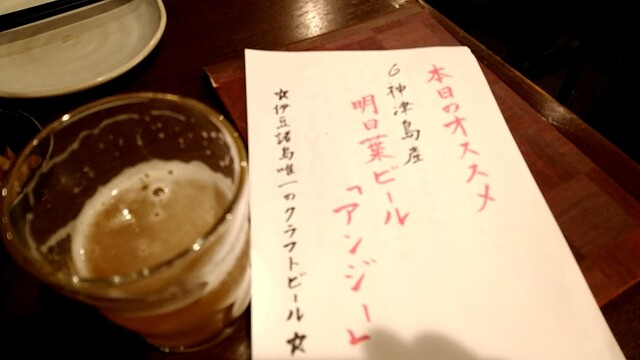 本日のオススメ
神津島産
明日葉ビール
「アンジー」
☆伊豆諸島唯一のクラフトビール☆